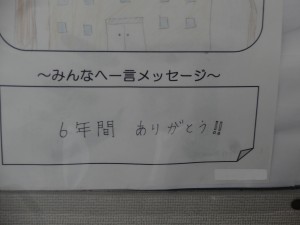 ～みんなへ一言メッセージ～
6年間 ありがとう!!